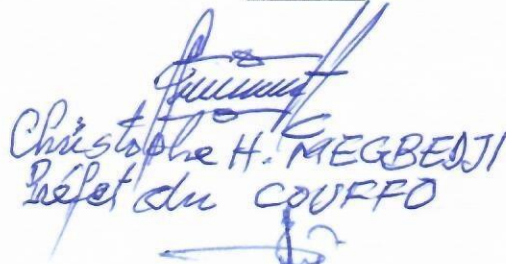 Christophe H. MEGBEDJI
Préfet du COUFFO